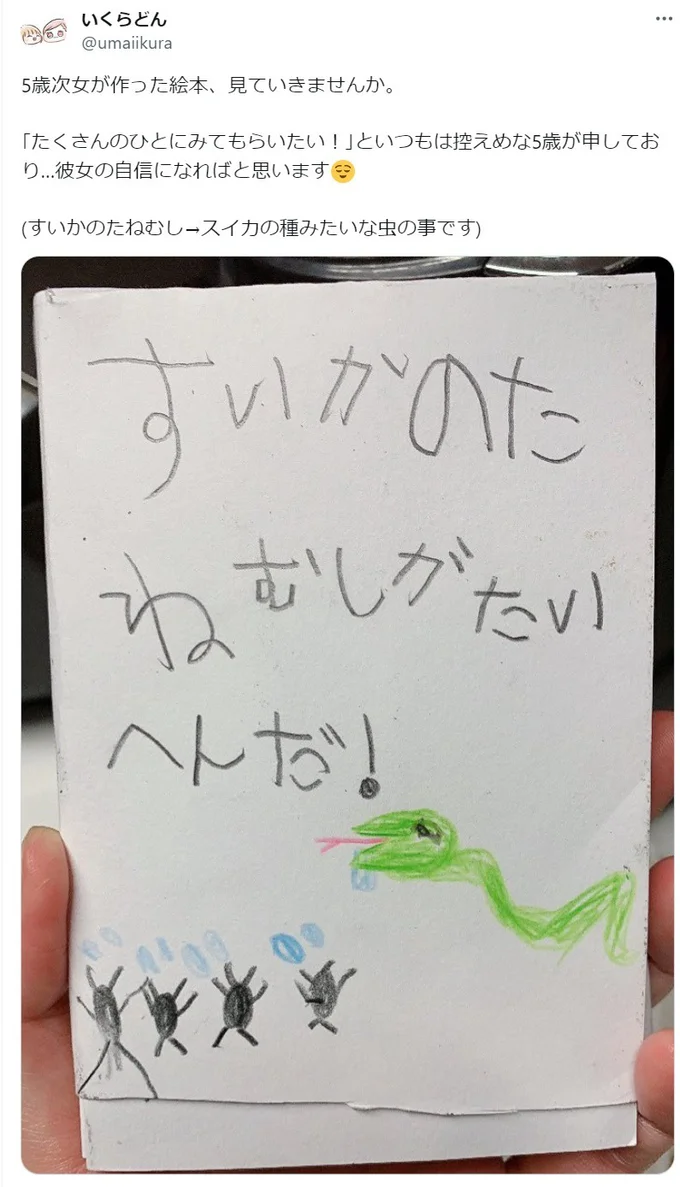 いくらどん
@umaiikura
5歳次女が作った絵本、見ていきませんか。
｢たくさんのひとにみてもらいたい！｣といつもは控えめな5歳が申してお
り...彼女の自信になればと思います😌
(すいかのたねむし→スイカの種みたいな虫の事です)
すいかのた
ねむしがたい
へんだ！